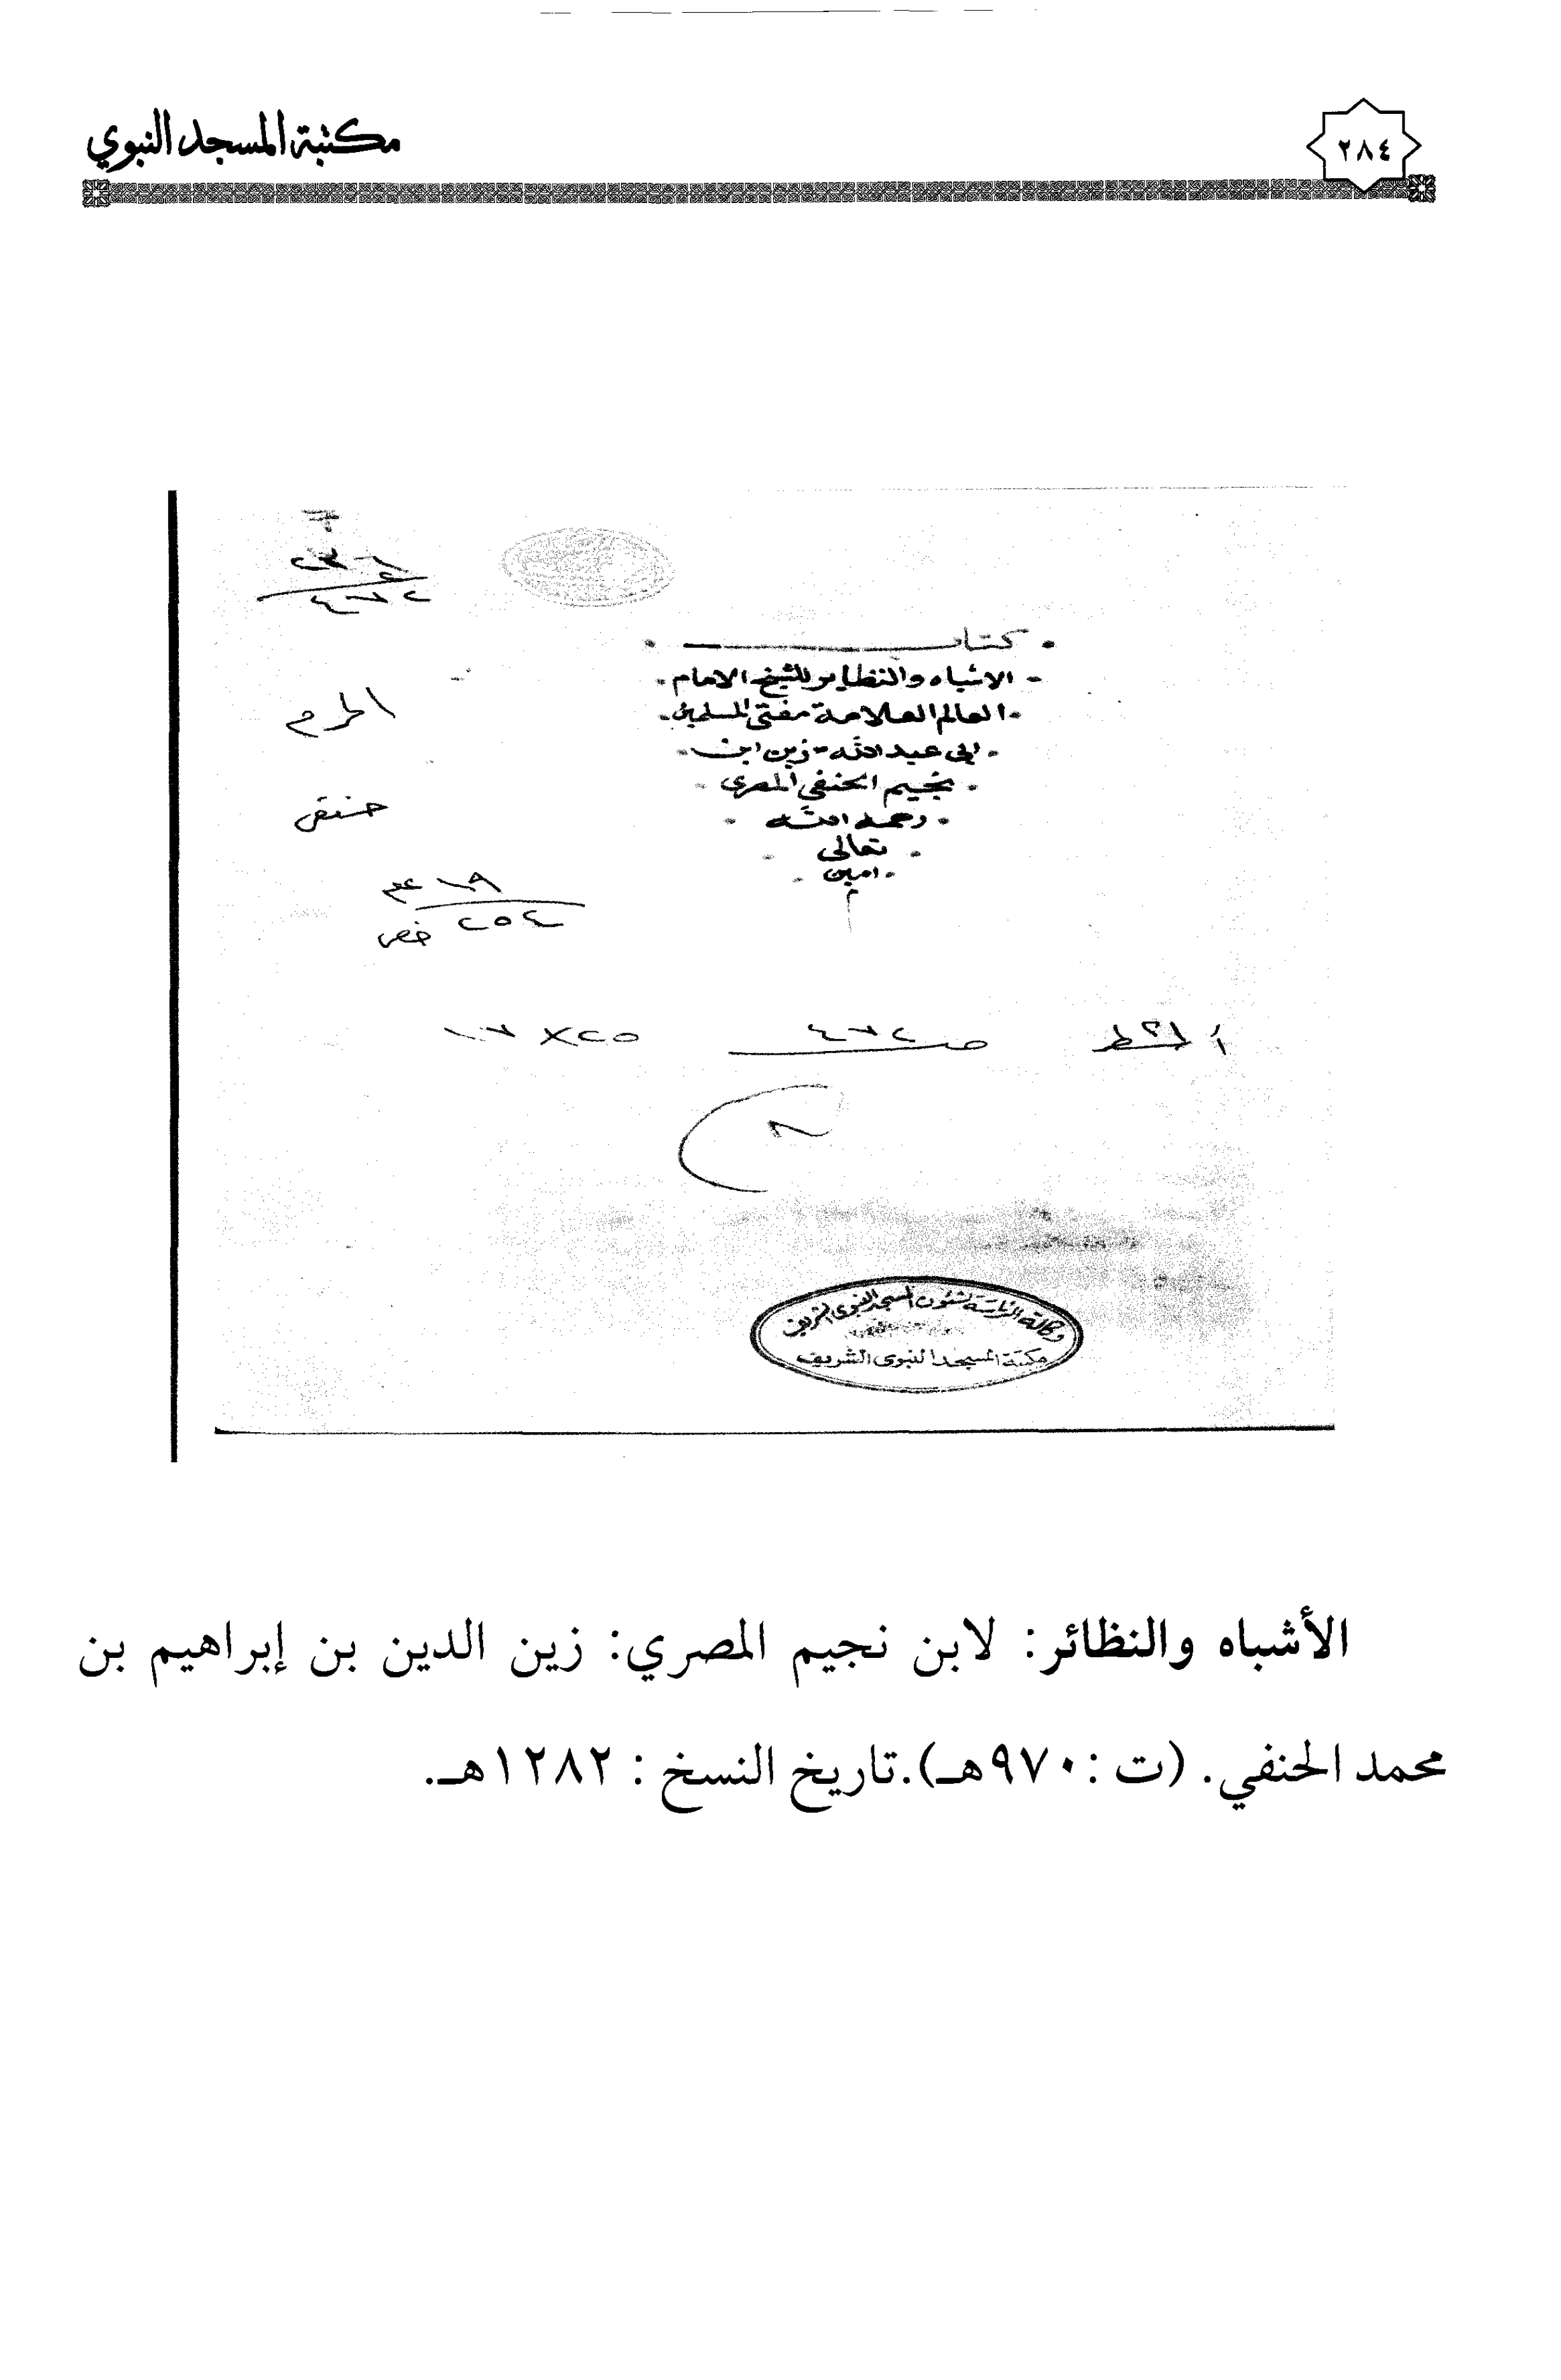 ٢٨٤
مكتبة المسجد النبوي
٢٣٦
٤٧٢
كتاب
الاشباه والنظاير للشيخ الامام
العالم العلامة مفتى المسلمين
ابى عبد الله زين ابن
نجيم الحنفى المصرى
رحمه الله
تعالى
امين
م
الحرم
حنفى
٢٥٤
٤٧٢
٢٥×١٧
وكالة الرئاسة لشئون المسجد النبوى الشريف
مكتبة المسجد النبوى الشريف
الأشباه والنظائر: لابن نجيم المصري: زين الدين بن إبراهيم بن
محمد الحنفي. (ت :٩٧٠هـ).تاريخ النسخ : ١٢٨٢هـ.